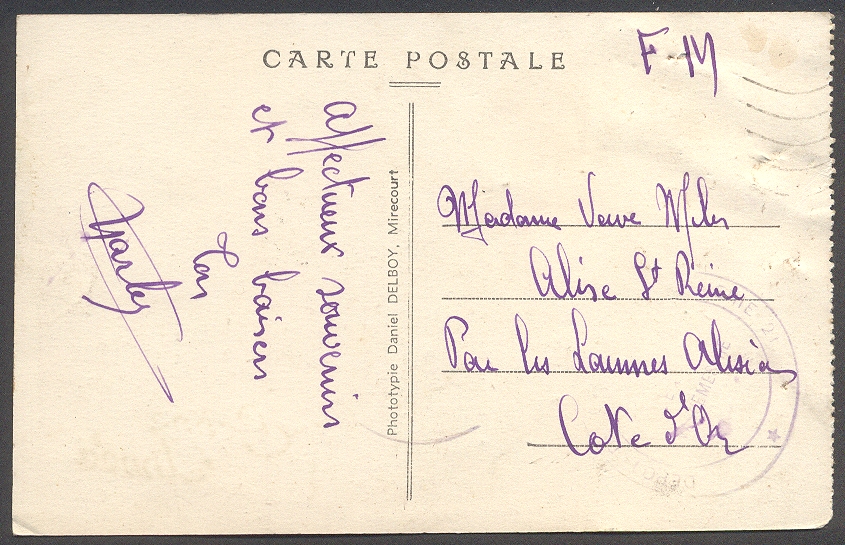 CARTE POSTALE
F M
Affectueux souvenirs
et bons baisers
Ton
Charles
Phototypie Daniel DELBOY, Mirecourt
Madame Veuve Miles
Alise St Reine
Par les Laumes Alisia
Cote d'Or